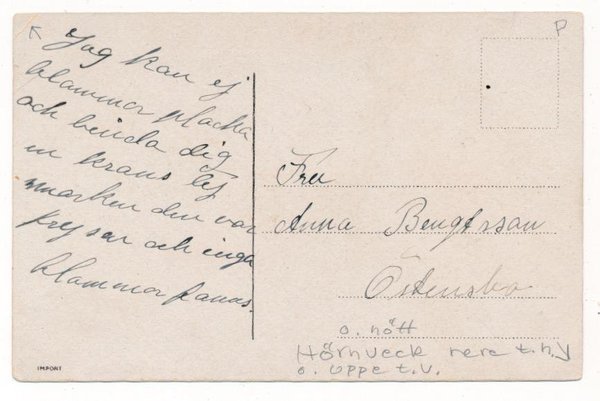 Jag kan ej
blammor plocka
och binda dig
en krans ty
marken den var
frysen och inga
blammor fanns.
P
Fru
Anna Bengtsson
o. nött
Hörnveck nere t.h.
o. uppe t.v.
IMPORT